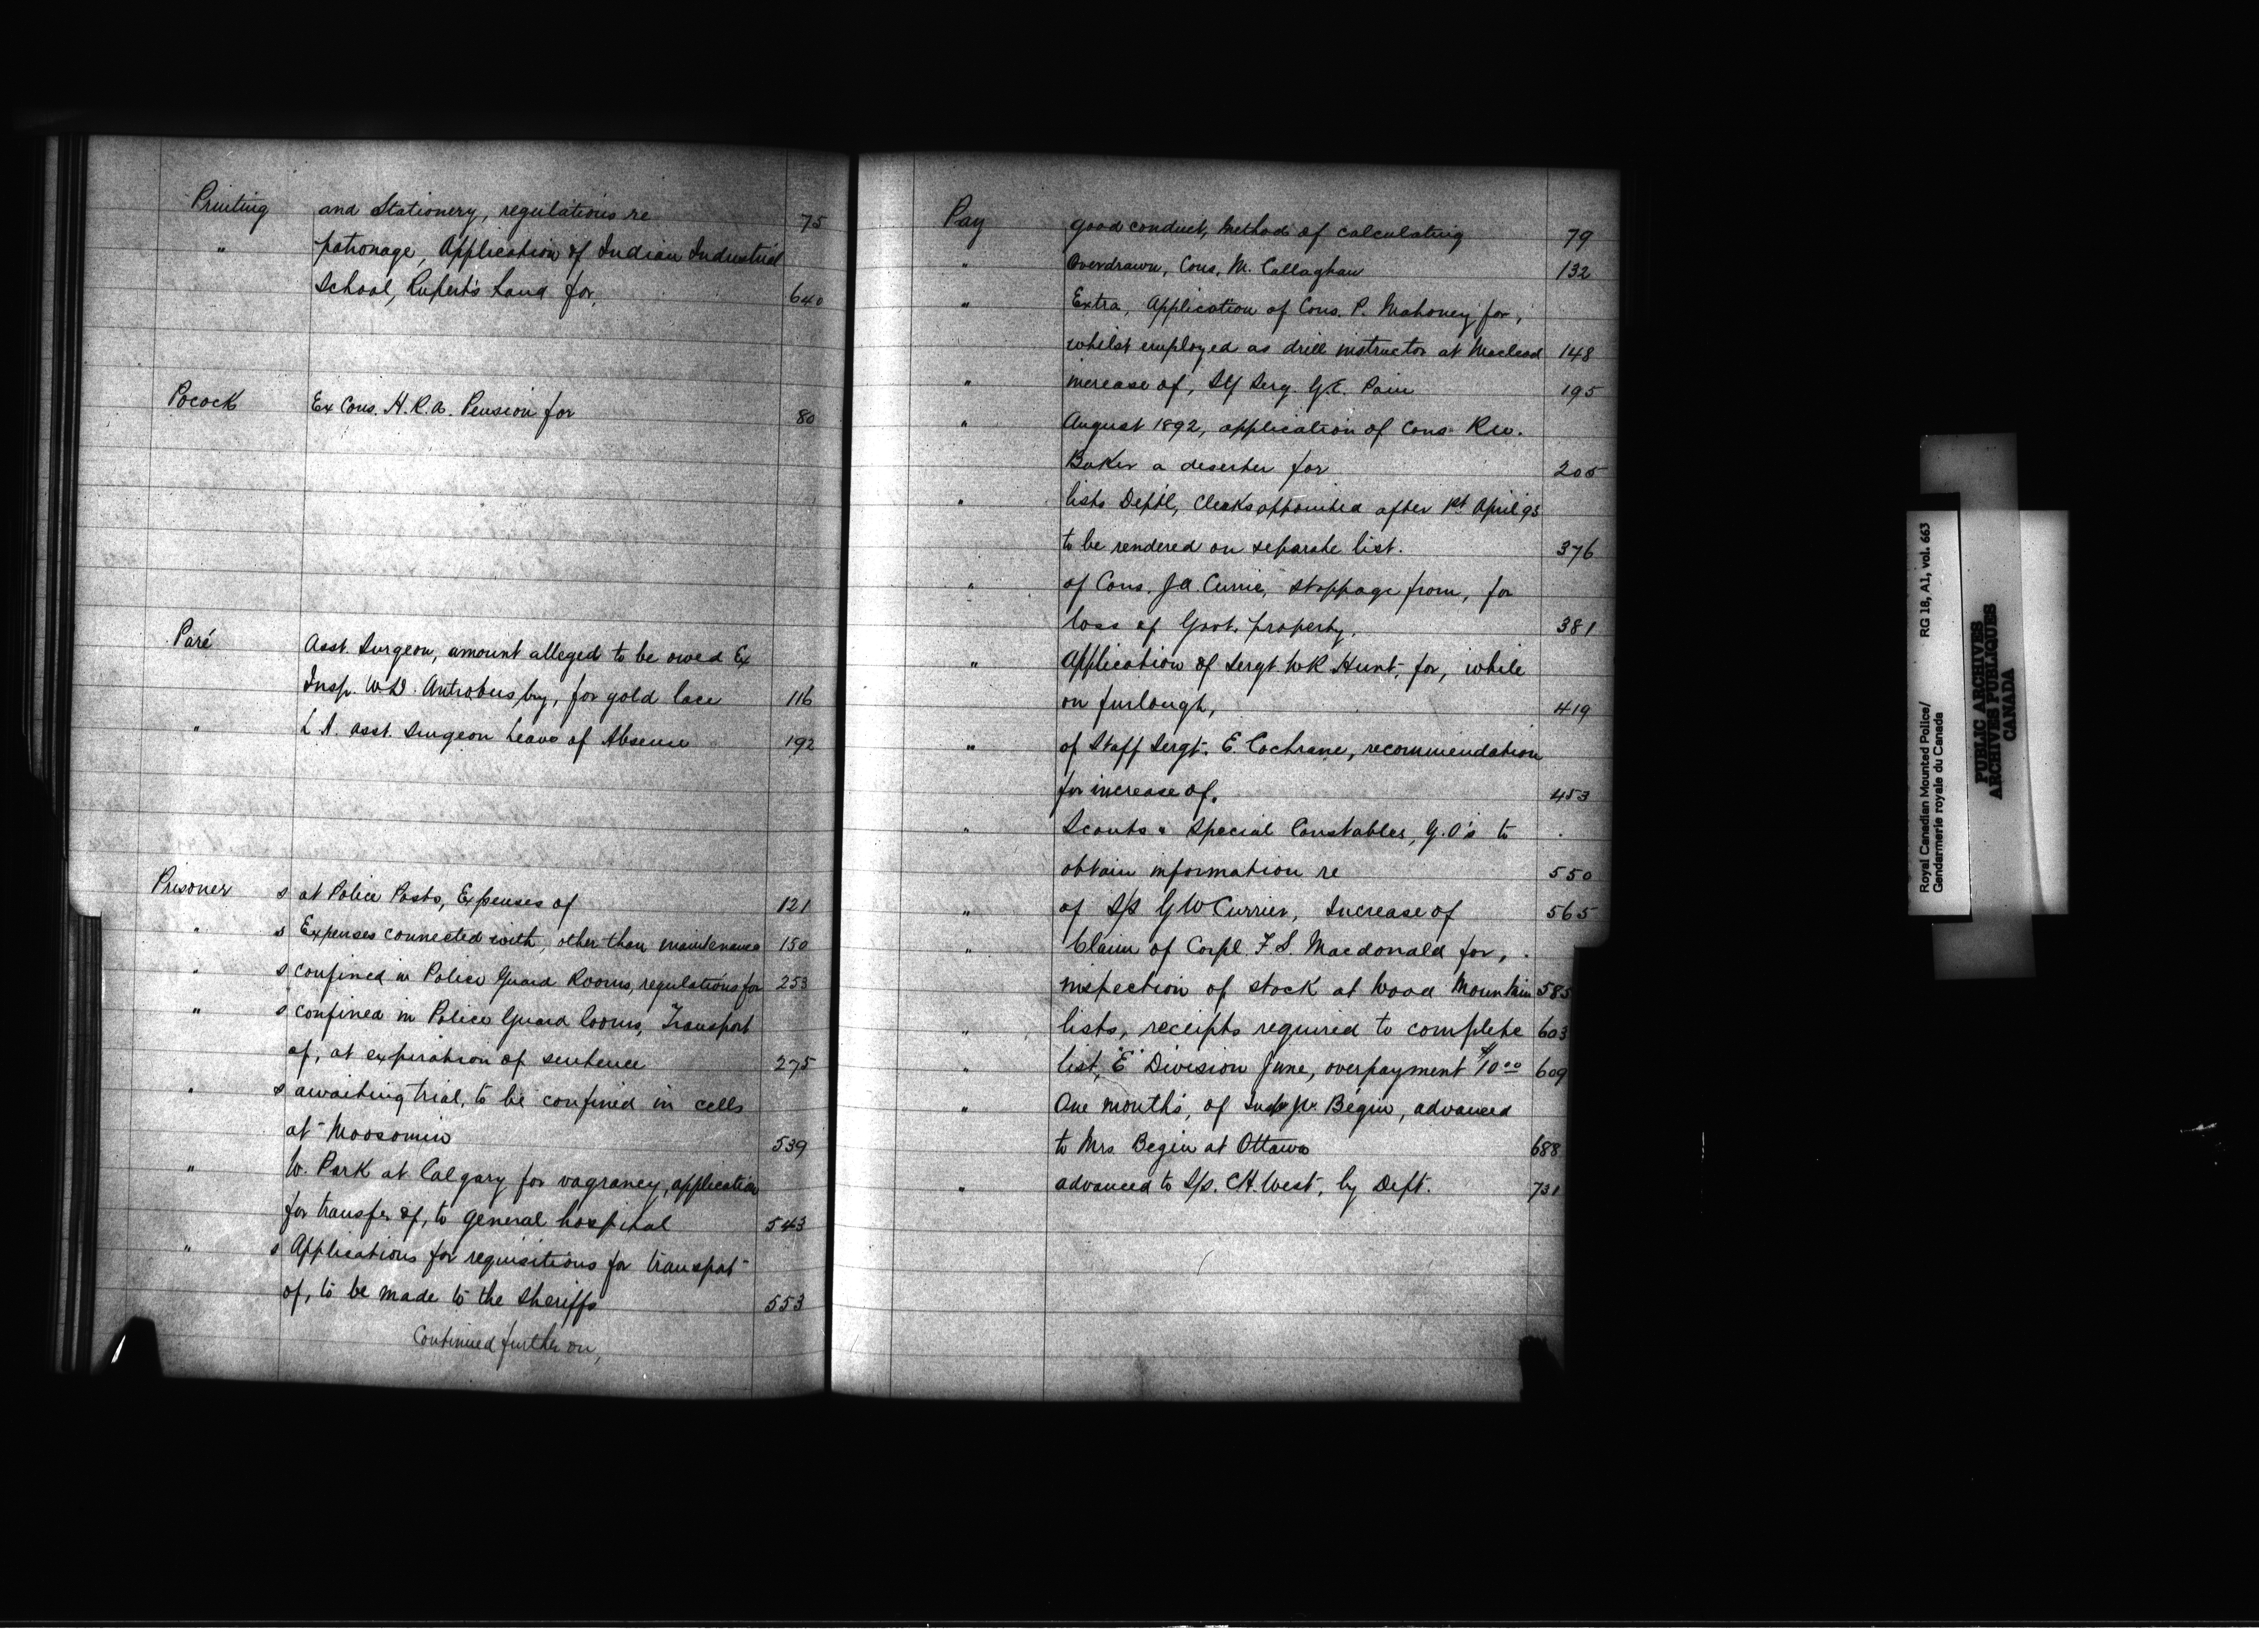 Printing and Stationery, regulations re 75
" patronage, Application of Indian Industrial
School, Rupert's Land for, 640
Pocock Ex Cons. H.R.A. Pension for 80
Paré Asst. Surgeon, amount alleged to be owed Ex
Insp. W D. Antrobus by, for gold lace 116
" L A. Asst. Surgeon Leave of Absence 192
Prisoner s at Police Posts, Expenses of 121
" s Expenses connected with, other than maintenance 150
" s confined in Police Guard Rooms, regulations for 253
" s confined in Police Guard Rooms, Transport
of, at expiration of sentence 275
" s awaiting trial, to be confined in cells
at Moosomin 539
" W. Park at Calgary for vagrancy, application
for transfer of, to General hospital 543
" s Applications for requisitions for transpot
of, to be made to the Sheriffs 553
Continued further on,
Pay good conduct, method of calculating 79
" Overdrawn, Cons. M. Callaghan 132
" Extra, Application of Cons. P. Mahoney for,
whilst employed as drill instructor at Macleod 148
" increase of, Serg. G.E. Pain 195
" August 1892, application of Cons. R.W.
Baker a deserter for 205
" lists Deptl, Clerks appointed after 1st April 93
to be rendered on separate list. 376
" of Cons. J.A. Currie, stoppage from, for
loss of Govt. property. 381
" Application of Sergt. W R Hunt, for, while
on furlough, 419
" of Staff Sergt. E. Cochrane, recommendation
for increase of. 453
" Scouts & Special Constables, G.O's to
obtain information re 550
" of S/S G W Currier, Increase of 565
" Claim of Corpl. F. S. Macdonald for,
inspection of stock at Wood Mountain 585
" lists, receipts required to complete 603
" list, "E" Division June, overpayment $10 00 609
" One months, of Insp Begin, advanced
to Mrs Begin at Ottawa 688
" advanced to S/S. C.H. West, by Dept. 731
Royal Canadian Mounted Police/ RG 18, A1, vol. 663
Gendarmerie royale du Canada
PUBLIC ARCHIVES
ARCHIVES PUBLIQUES
CANADA